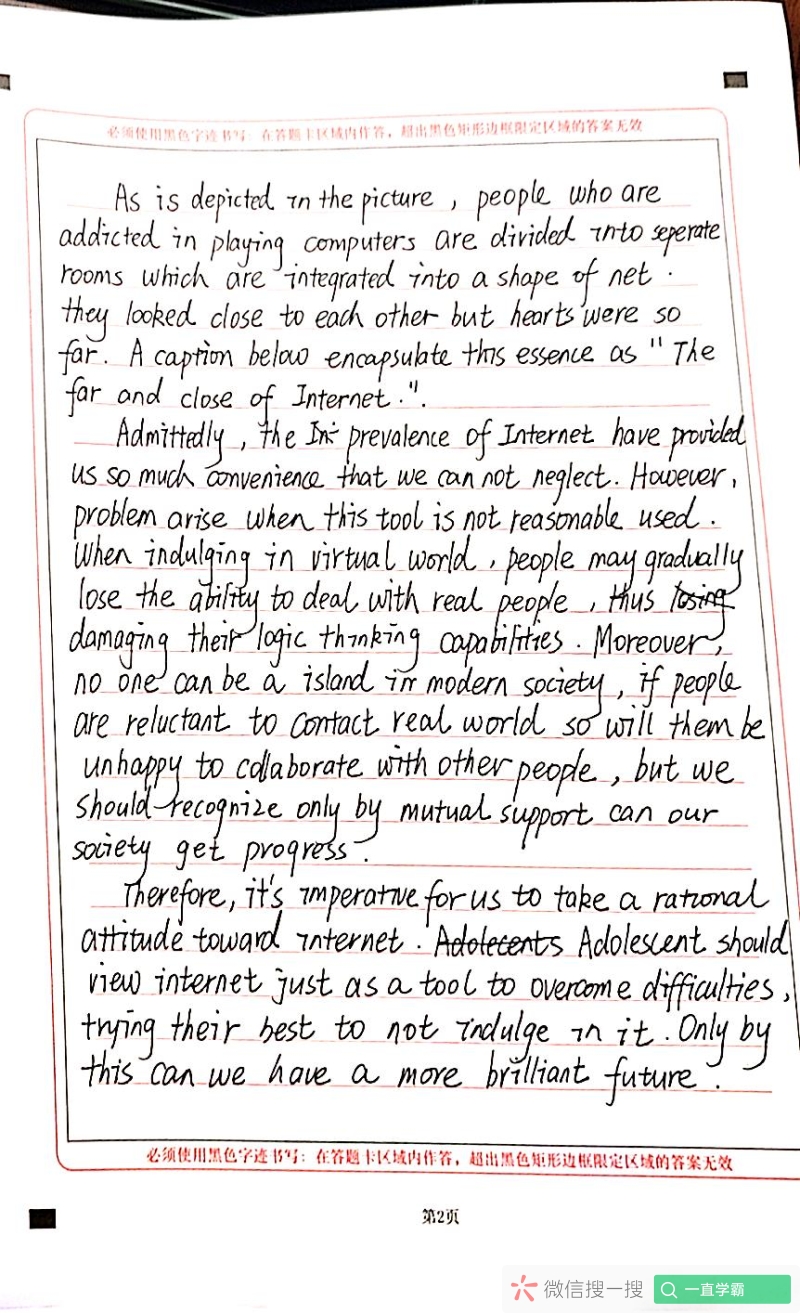 必须使用黑色字迹书写：在答题卡区域内作答，超出黑色矩形边框限定区域的答案无效
As is depicted in the picture , people who are
addicted in playing computers are divided into seperate
rooms which are integrated into a shape of net .
they looked close to each other but hearts were so
far. A caption below encapsulate this essence as " The
far and close of Internet .".
Admittedly , the Int prevalence of Internet have provided
us so much convenience that we can not neglect. However,
problem arise when this tool is not reasonable used .
When indulging in virtual world , people may gradually
lose the ability to deal with real people , thus losing
damaging their logic thinking capabilities . Moreover,
no one can be a island in modern society , if people
are reluctant to contact real world so will them be
unhappy to collaborate with other people , but we
should recognize only by mutual support can our
society get progress .
Therefore, it's imperative for us to take a rational
attitude toward internet . Adolecents Adolescent should
view internet just as a tool to overcome difficulties ,
trying their best to not indulge in it . Only by
this can we have a more brilliant future .
必须使用黑色字迹书写：在答题卡区域内作答，超出黑色矩形边框限定区域的答案无效
第2页
微信搜一搜 一直学霸